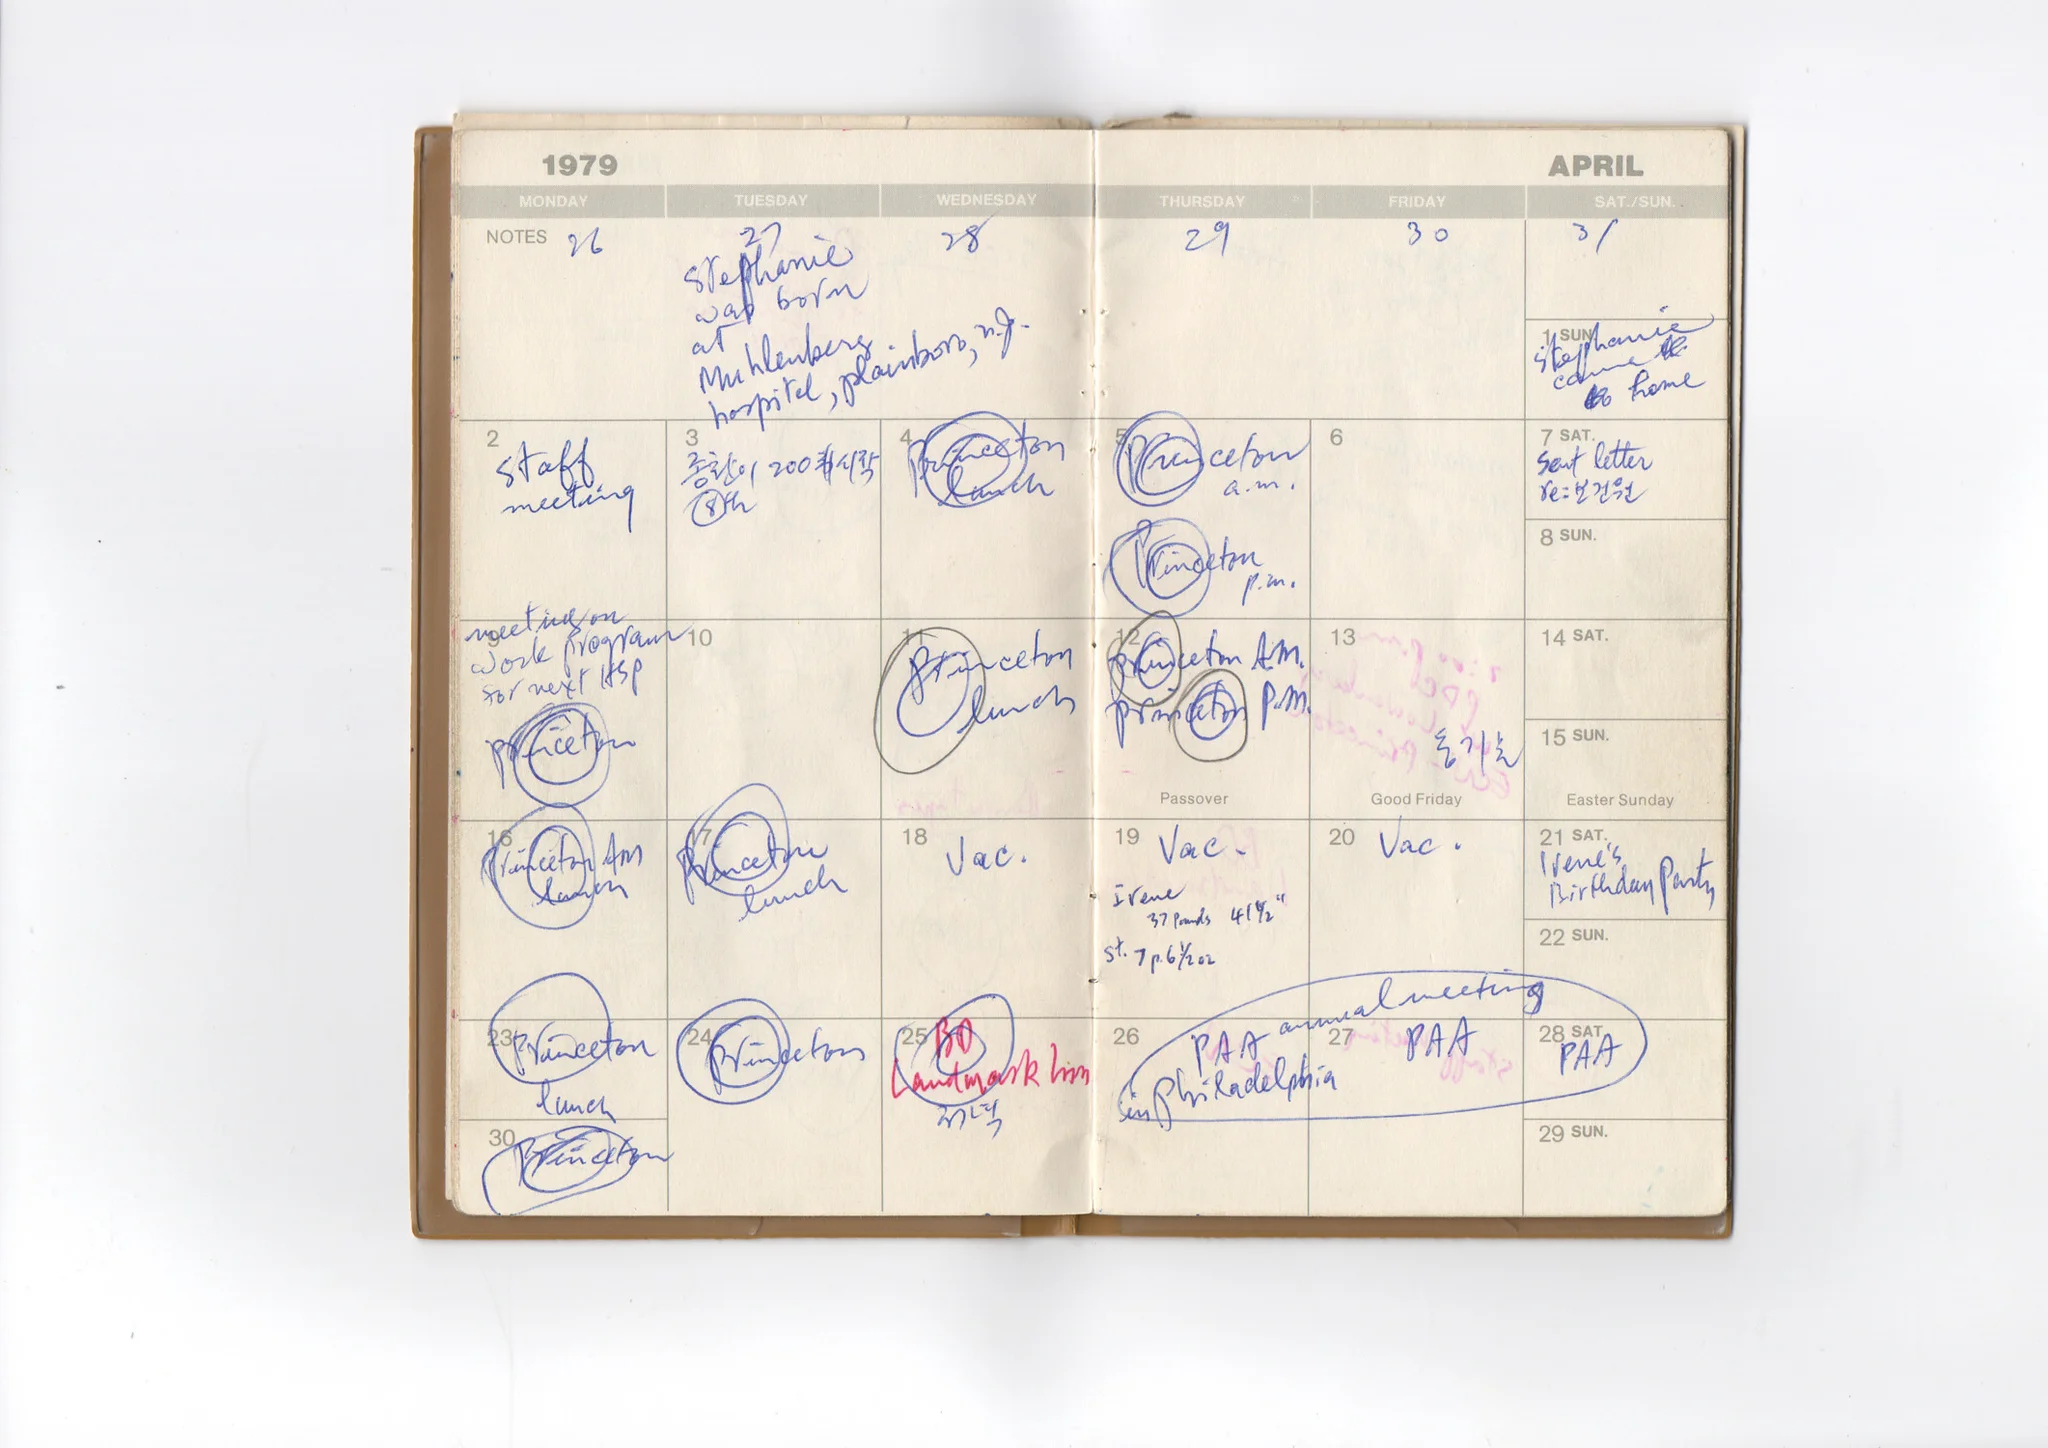 1979
APRIL
MONDAY TUESDAY WEDNESDAY THURSDAY FRIDAY SAT./SUN.
NOTES 26
27
Stephanie
was born
at
Muhlenberg
hospital, plainboro, n.J.
28
29
30
31
1 SUN.
Stephanie
came
to home
2
Staff
meeting
3
200
4
Princeton
lunch
5
Princeton
a.m.
Princeton
p.m.
6
7 SAT.
Sent letter
re: 보건원
8 SUN.
9
meeting on
work program
for next HSP
princeton
10
11
Princeton
lunch
12
princeton A.M.
princeton P.M.
Passover
13
Good Friday
14 SAT.
15 SUN.
Easter Sunday
16
Princeton AM
lunch
17
Princeton
lunch
18
Vac.
19
Vac.
Irene
37 pounds 41 1/2"
St. 7 p. 6 1/2 oz
20
Vac.
21 SAT.
Irene's
Birthday Party
22 SUN.
23
Princeton
lunch
24
princeton
25
BO
Landmark Inn
저녁
26
PAA annual meeting
in philadelphia
27
PAA
28 SAT.
PAA
29 SUN.
30
Princeton